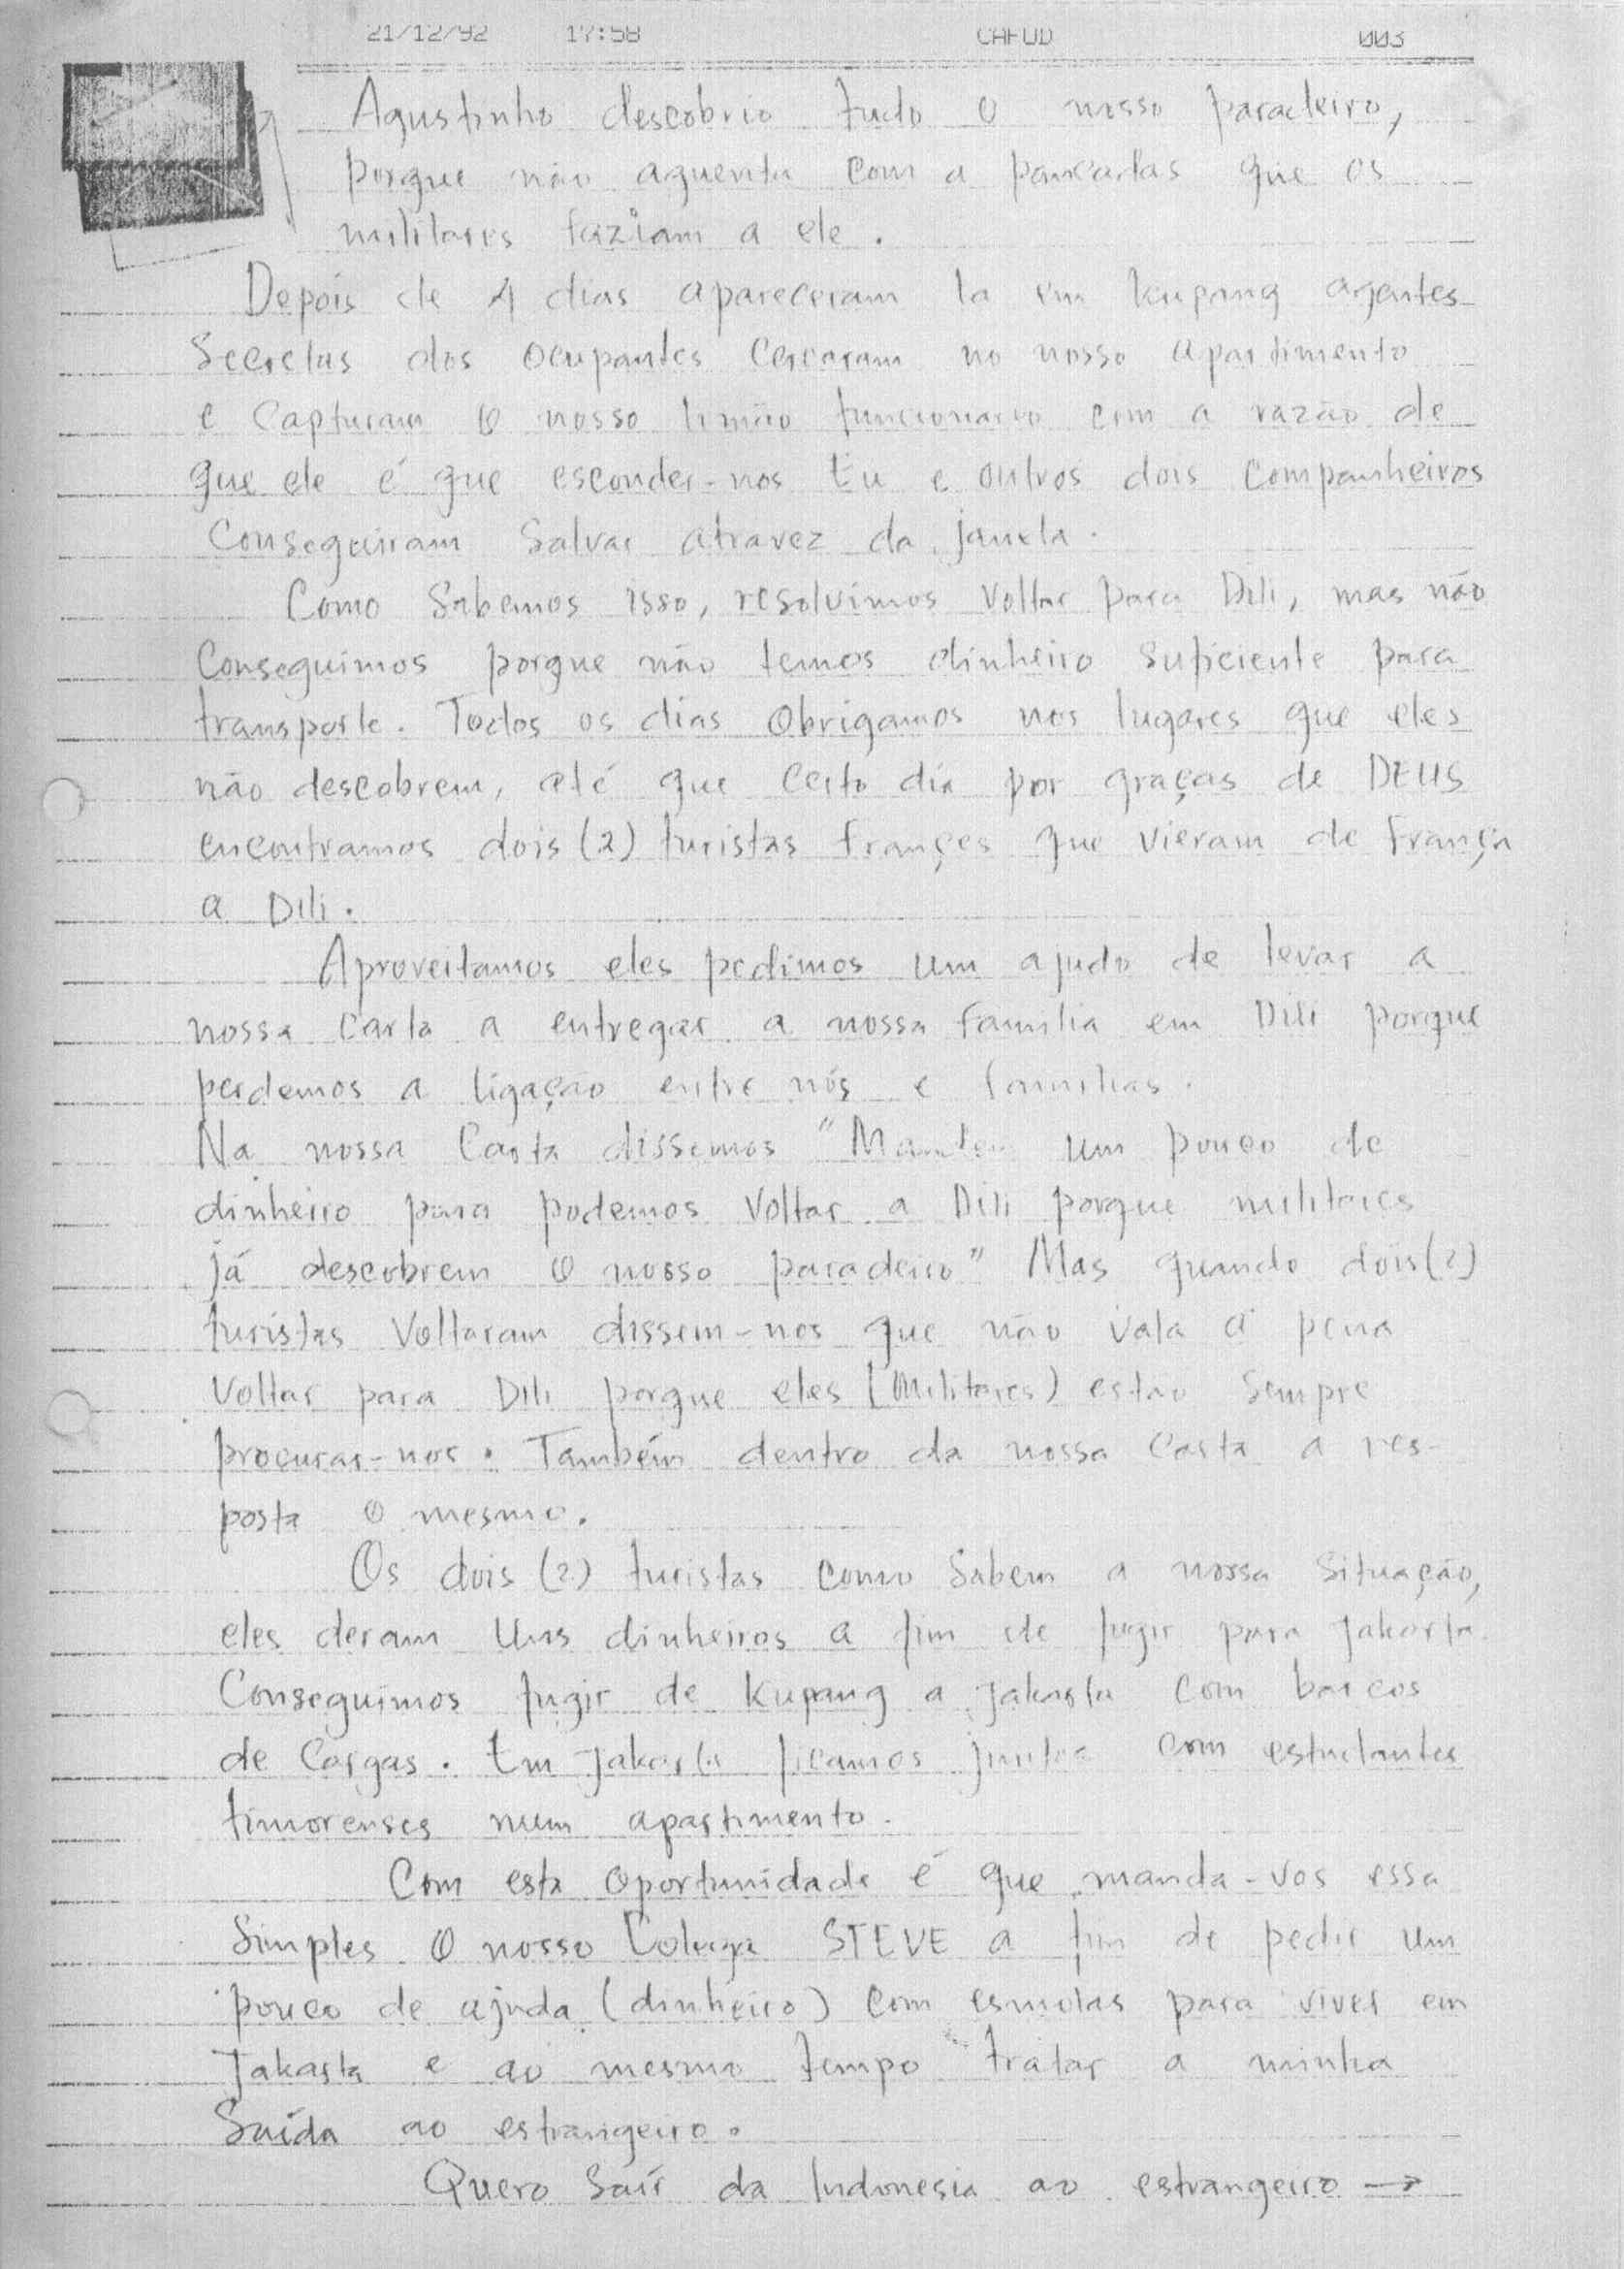 21/12/92 17:58 CAFUD 003
Agustinho descobrio tudo o nosso paradeiro,
porque não aguenta com a pancadas que os
militares faziam a ele.
Depois de 4 dias apareceram la em Kupang agentes
Secretas dos ocupantes Cercaram no nosso apartimento
e Capturam o nosso Irmão funcionario com a razão de
que ele é que esconder-nos Eu e outros dois Companheiros
Conseguiram Salvar atravez da janela.
Como Sabemos isso, resolvimos Voltar para Dili, mas não
Conseguimos porque não temos dinheiro Suficiente para
transporte. Todos os dias Obrigamos nos lugares que eles
não descobrem, até que Certo dia por graças de DEUS
encontramos dois (2) turistas françes que vieram de França
a Dili.
Aproveitamos eles pedimos um ajudo de levar a
nossa Carta a entregar a nossa família em Dili porque
perdemos a ligação entre nós e famílias.
Na nossa Carta dissemos "Mandem um pouco de
dinheiro para podemos Voltar a Dili porque militares
já descobrem o nosso paradeiro" Mas quando dois (2)
turistas Voltaram dissem-nos que não vala a pena
Voltar para Dili porque eles (militares) estão Sempre
procurar-nos. Também dentro da nossa Carta a res-
posta o mesmo.
Os dois (2) turistas como Sabem a nossa Situação,
eles deram Uns dinheiros a fim de fugir para Jakarta.
Conseguimos fugir de Kupang a Jakarta Com barcos
de Cargas. Em Jakarta ficamos juntos com estudantes
timorenses num apartimento.
Com esta oportunidade é que manda-vos essa
Simples o nosso Colega STEVE a fim de pedir um
pouco de ajuda (dinheiro) com esmolas para viver em
Jakarta e ao mesmo tempo tratar a minha
Saída ao estrangeiro.
Quero Saír da Indonesia ao estrangeiro →